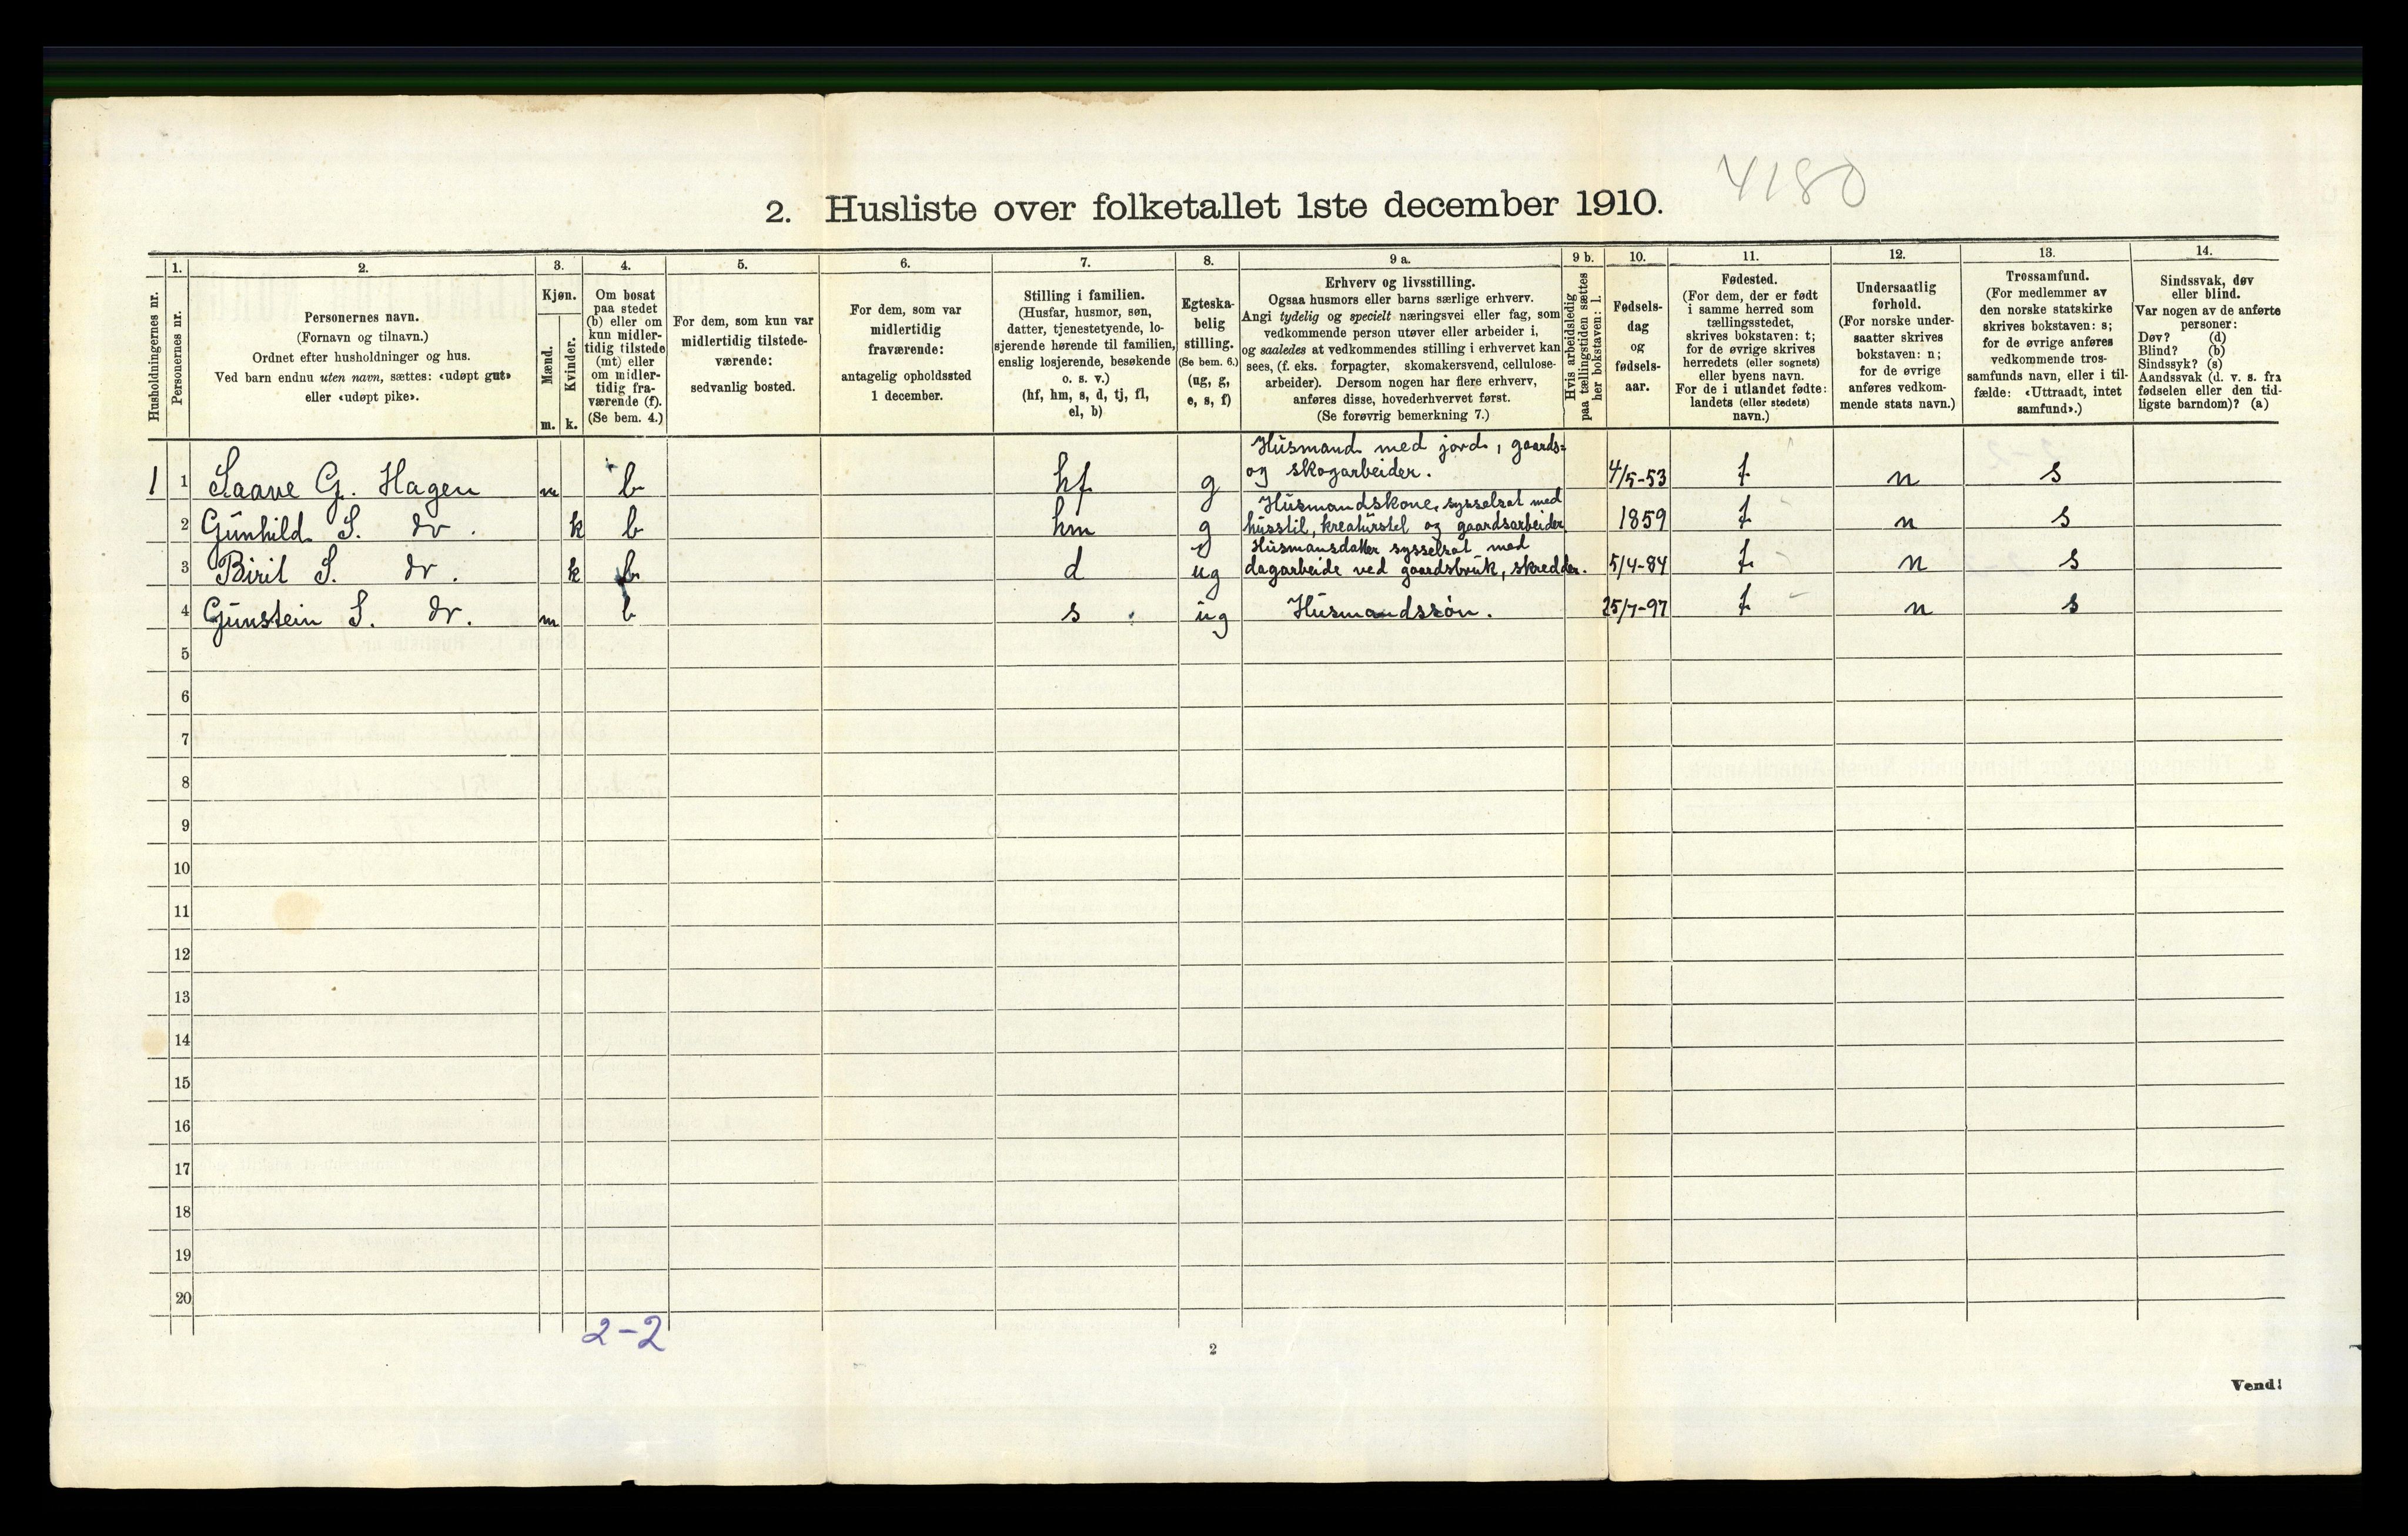 4180
2. Husliste over folketallet 1ste december 1910.
Husholdningernes nr.
1.
Personernes nr.
2.
Personernes navn.
(Fornavn og tilnavn.)
Ordnet efter husholdninger og hus.
Ved barn endnu uten navn, sættes: «udøpt gut»
eller «udøpt pike».
3.
Kjøn.
Mænd.
Kvinder.
m. k.
4.
Om bosat
paa stedet
(b) eller om
kun midler-
tidig tilstede
(mt) eller
om midler-
tidig fra-
værende (f).
(Se bem. 4.)
5.
For dem, som kun var
midlertidig tilstede-
værende:
sedvanlig bosted.
6.
For dem, som var
midlertidig
fraværende:
antagelig opholdssted
1 december.
7.
Stilling i familien.
(Husfar, husmor, søn,
datter, tjenestetyende, lo-
sjerende hørende til familien,
enslig losjerende, besøkende
o. s. v.)
(hf, hm, s, d, tj, fl,
el, b)
8.
Egteska-
belig
stilling.
(Se bem. 6.)
(ug, g,
e, s, f)
9 a.
Erhverv og livsstilling.
Ogsaa husmors eller barns særlige erhverv.
Angi tydelig og specielt næringsvei eller fag, som
vedkommende person utøver eller arbeider i,
og saaledes at vedkommendes stilling i erhvervet kan
sees, (f. eks. forpagter, skomakersvend, cellulose-
arbeider). Dersom nogen har flere erhverv,
anføres disse, hovederhvervet først.
(Se forøvrig bemerkning 7.)
9 b.
Hvis arbeidsledig
paa tællingstiden sættes
her bokstaven: l.
10.
Fødsels-
dag
og
fødsels-
aar.
11.
Fødested.
(For dem, der er født
i samme herred som
tællingsstedet,
skrives bokstaven: t;
for de øvrige skrives
herredets (eller sognets)
eller byens navn.
For de i utlandet fødte:
landets (eller stedets)
navn.)
12.
Undersaatlig
forhold.
(For norske under-
saatter skrives
bokstaven: n;
for de øvrige
anføres vedkom-
mende stats navn.)
13.
Trossamfund.
(For medlemmer av
den norske statskirke
skrives bokstaven: s;
for de øvrige anføres
vedkommende tros-
samfunds navn, eller i til-
fælde: «Uttraadt, intet
samfund».)
14.
Sindssvak, døv
eller blind.
Var nogen av de anførte
personer:
Døv? (d)
Blind? (b)
Sindssyk? (s)
Aandssvak (d. v. s. fra
fødselen eller den tid-
ligste barndom)? (a)
Husmand med jord, gaards-
1 1 Saave G. Hagen m b hf g og skogarbeider. 4/5-53 t n s
Husmandskone, sysselsat med
2 Gunhild S. do. k b hm g husstil, kreaturstel og gaardsarbeider 1859 t n s
Husmansdatter sysselsat med
3 Birit S. do. k b d ug dagarbeide ved gaardsbruk, skredder. 5/4-84 t n s
4 Gunstein S. do. m b s ug Husmandssøn. 25/7-97 t n s
5
6
7
8
9
10
11
12
13
14
15
16
17
18
19
20
2-2
2
Vend!